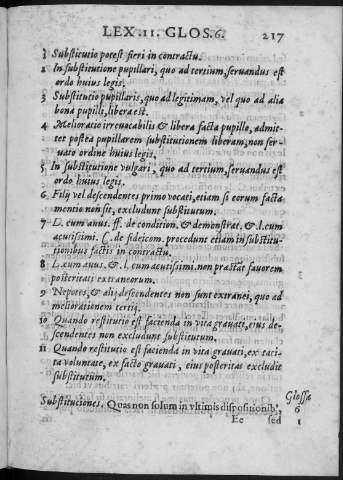 LEX .II. GLOS.6. 217
1 Substitutio potest fieri in contractu.
2 In substitutione pupillari, quo ad tertium, seruandus est
ordo huius legis.
3 Substitutio pupillaris, quo ad legitimam, vel quo ad alia
bona pupilli, libera est.
4 Melioratio irreuocabilis & libera facta pupillo, admit-
tet postea pupillarem substitutionem liberam, non ser-
uato ordine huius legis.
5 In substitutione vulgari, quo ad tertium, seruandus est
ordo huius legis.
6 Filij vel descendentes primo vocati, etiam si eorum facta
mentio non sit, excludunt substitutum.
7 L. cum auus. ff. de condition. & demonstrat. & l. cum
acutissimi. C. de fideicom. procedunt etiam in substitu-
tionibus factis in contractu.
8 L. cum auus. & l. cum acutissimi. non præstat fauorem
posteritati extraneorum.
9 Nepotes, & alij descendentes non sunt extranei, quo ad
meliorationem tertij.
10 Quando restitutio est facienda in vita grauati, eius de-
scendentes non excludunt substitutum.
11 Quando restitutio est facienda in vita grauati, ex taci-
ta voluntate, ex facto grauati, eius posteritas excludit
substitutum.
Substituciones. Quas non solum in vltimis dispositionib',
Glossa
6
Ee sed 1